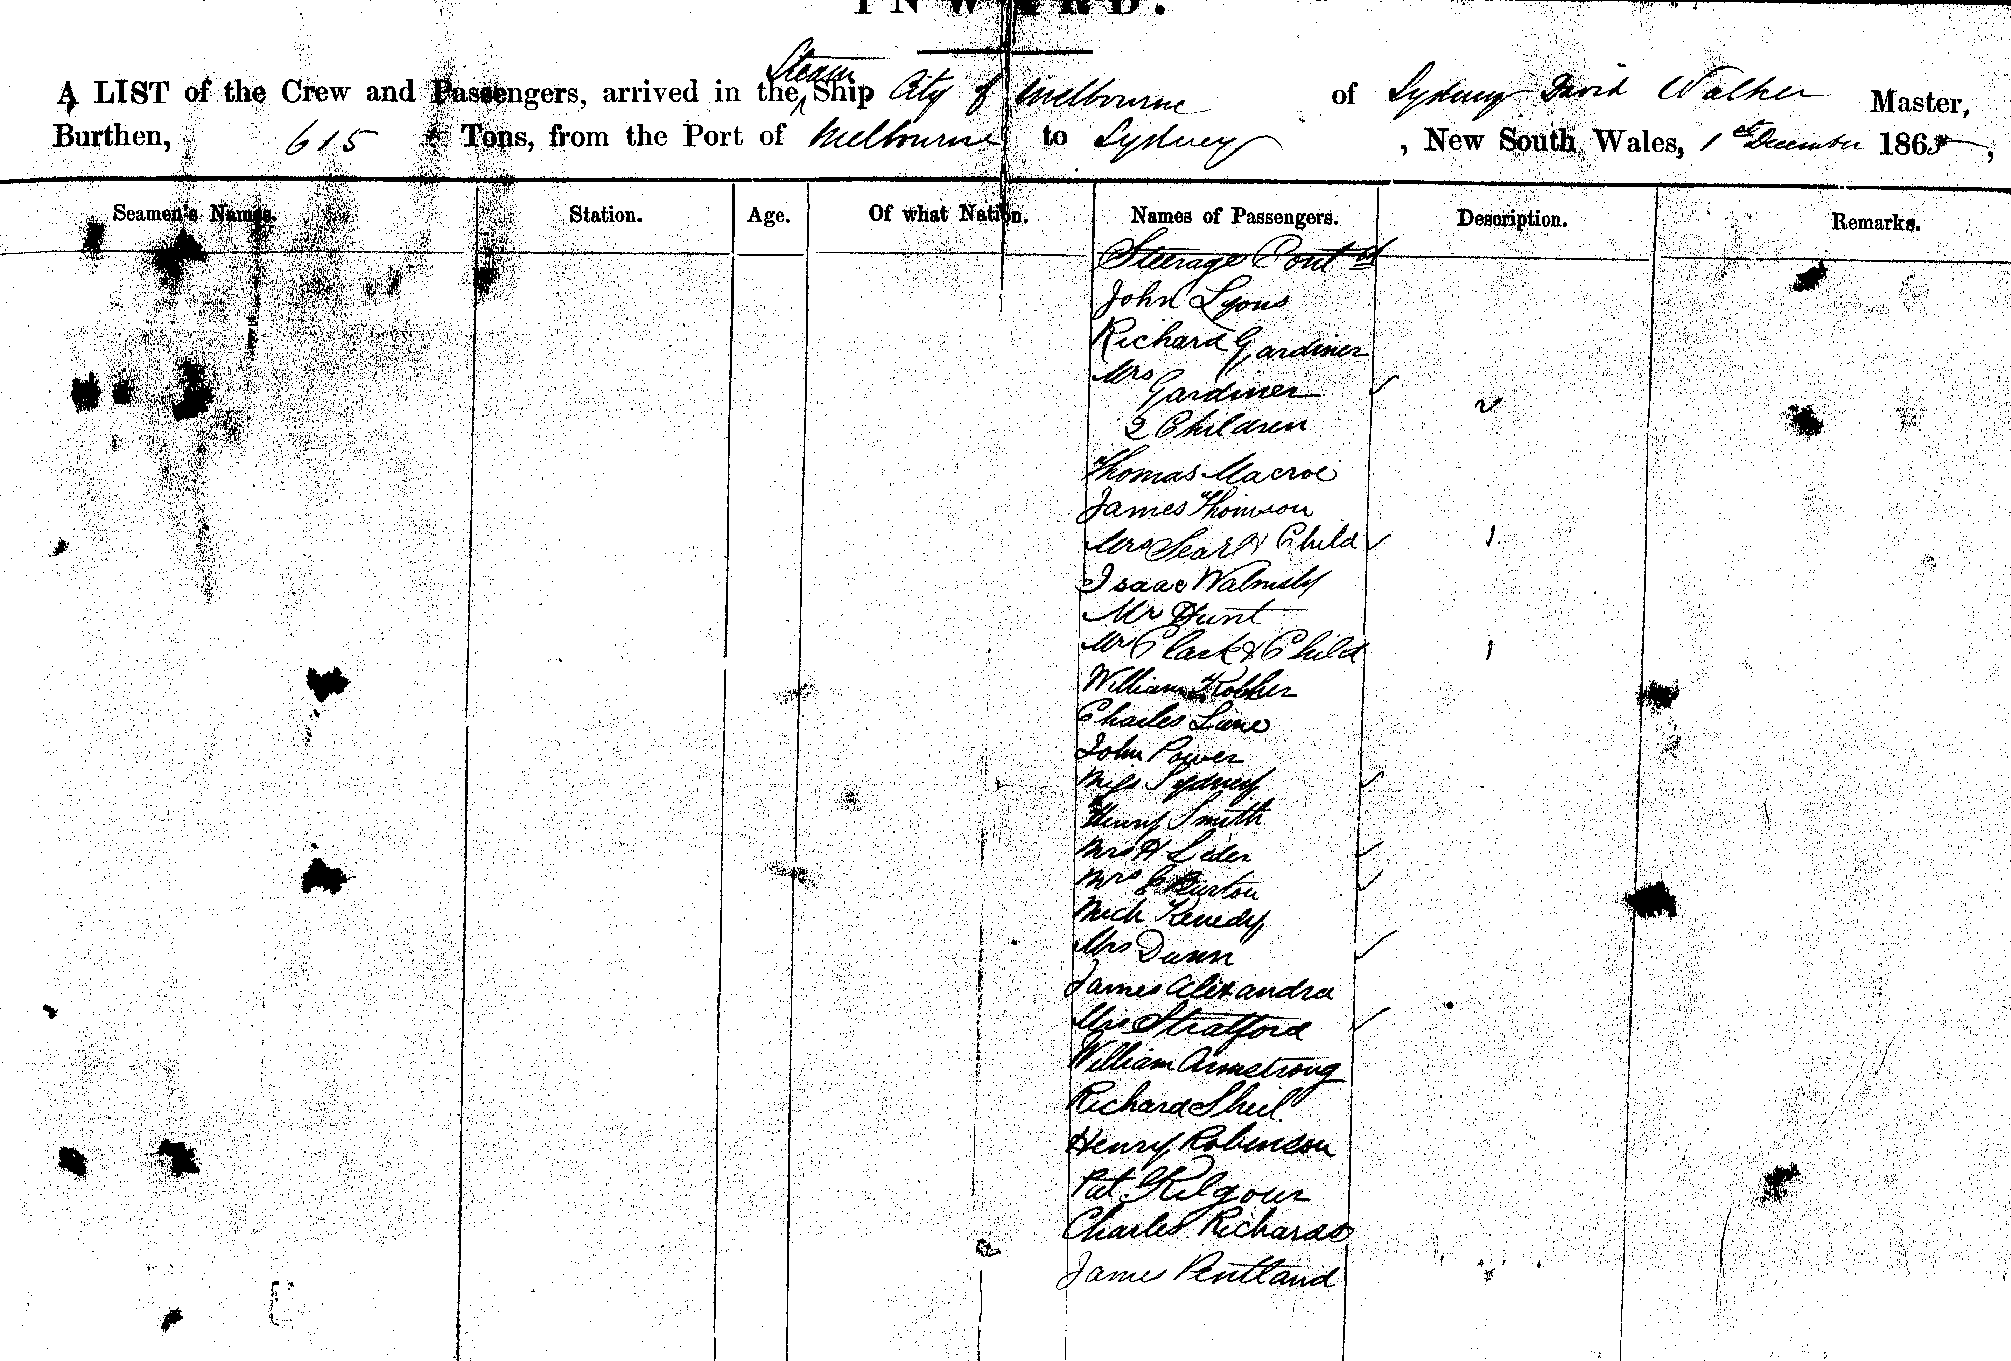 INWARD.
A LIST of the Crew and Passengers, arrived in the Steam Ship City of Melbourne of Sydney David Walker Master,
Burthen, 615 Tons, from the Port of Melbourne to Sydney, New South Wales, 1st December 1865,
Seamen's Names. Station. Age. Of what Nation. Names of Passengers. Description. Remarks.
Steerage Contd
John Lyons
Richard Gardiner
Mrs Gardiner ✓
2 Children 2
Thomas Macroe
James Thomson
Mrs Searl & Child ✓ 1
Isaac Walmsly
Mr Hunt
Mr Clark & Child 1
William
Charles Lane
John Power
Miss Sydney ✓
Henry Smith
Mrs H Lider ✓
Mrs Burton ✓
Mich Kenedy
Mrs Dunn ✓
James Alexandra
Mrs Stratford ✓
William Armstrong
Richard Sheil
Henry Robinson
Pat Kilgour
Charles Richards
James Pentland